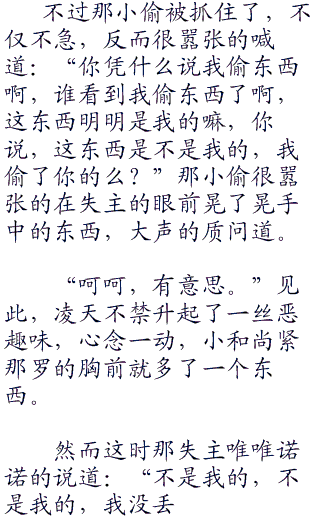 不过那小偷被抓住了，不
仅不急，反而很嚣张的喊
道：“你凭什么说我偷东西
啊，谁看到我偷东西了啊，
这东西明明是我的嘛，你
说，这东西是不是我的，我
偷了你的么？”那小偷很嚣
张的在失主的眼前晃了晃手
中的东西，大声的质问道。
“呵呵，有意思。”见
此，凌天不禁升起了一丝恶
趣味，心念一动，小和尚紧
那罗的胸前就多了一个东
西。
然而这时那失主唯唯诺
诺的说道：“不是我的，不
是我的，我没丢